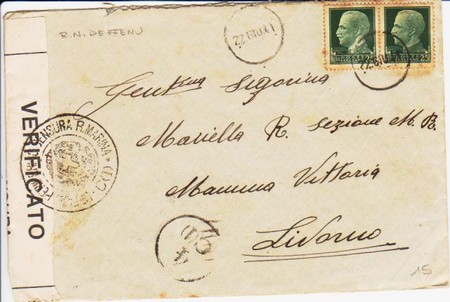 R.N. DEFFENU
22 GIU
22 GIU
Gent.ma Signorina
Mariella R. Sezione M.B.
Mamma Vittoria
Livorno
VERIFICATO
CENSURA R. MARINA
15